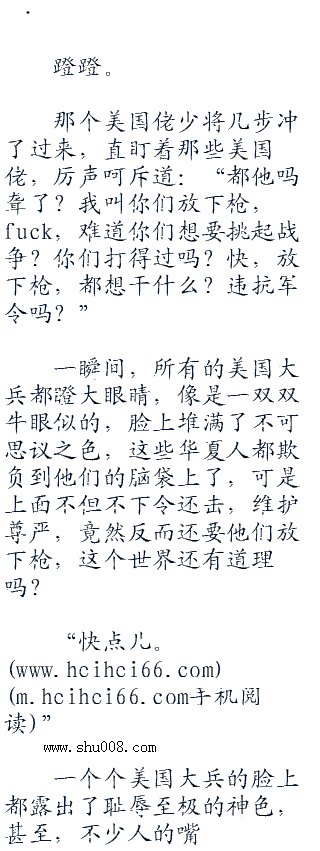 蹬蹬。
那个美国佬少将几步冲
了过来，直盯着那些美国
佬，厉声呵斥道：“都他吗
聋了？我叫你们放下枪，
fuck，难道你们想要挑起战
争？你们打得过吗？快，放
下枪，都想干什么？违抗军
令吗？”
一瞬间，所有的美国大
兵都瞪大眼睛，像是一双双
牛眼似的，脸上堆满了不可
思议之色，这些华夏人都欺
负到他们的脑袋上了，可是
上面不但不下令还击，维护
尊严，竟然反而还要他们放
下枪，这个世界还有道理
吗？
“快点儿。
(www.hcihci66.com)
(m.hcihci66.com手机阅
读)”
www.shu008.com
一个个美国大兵的脸上
都露出了耻辱至极的神色，
甚至，不少人的嘴